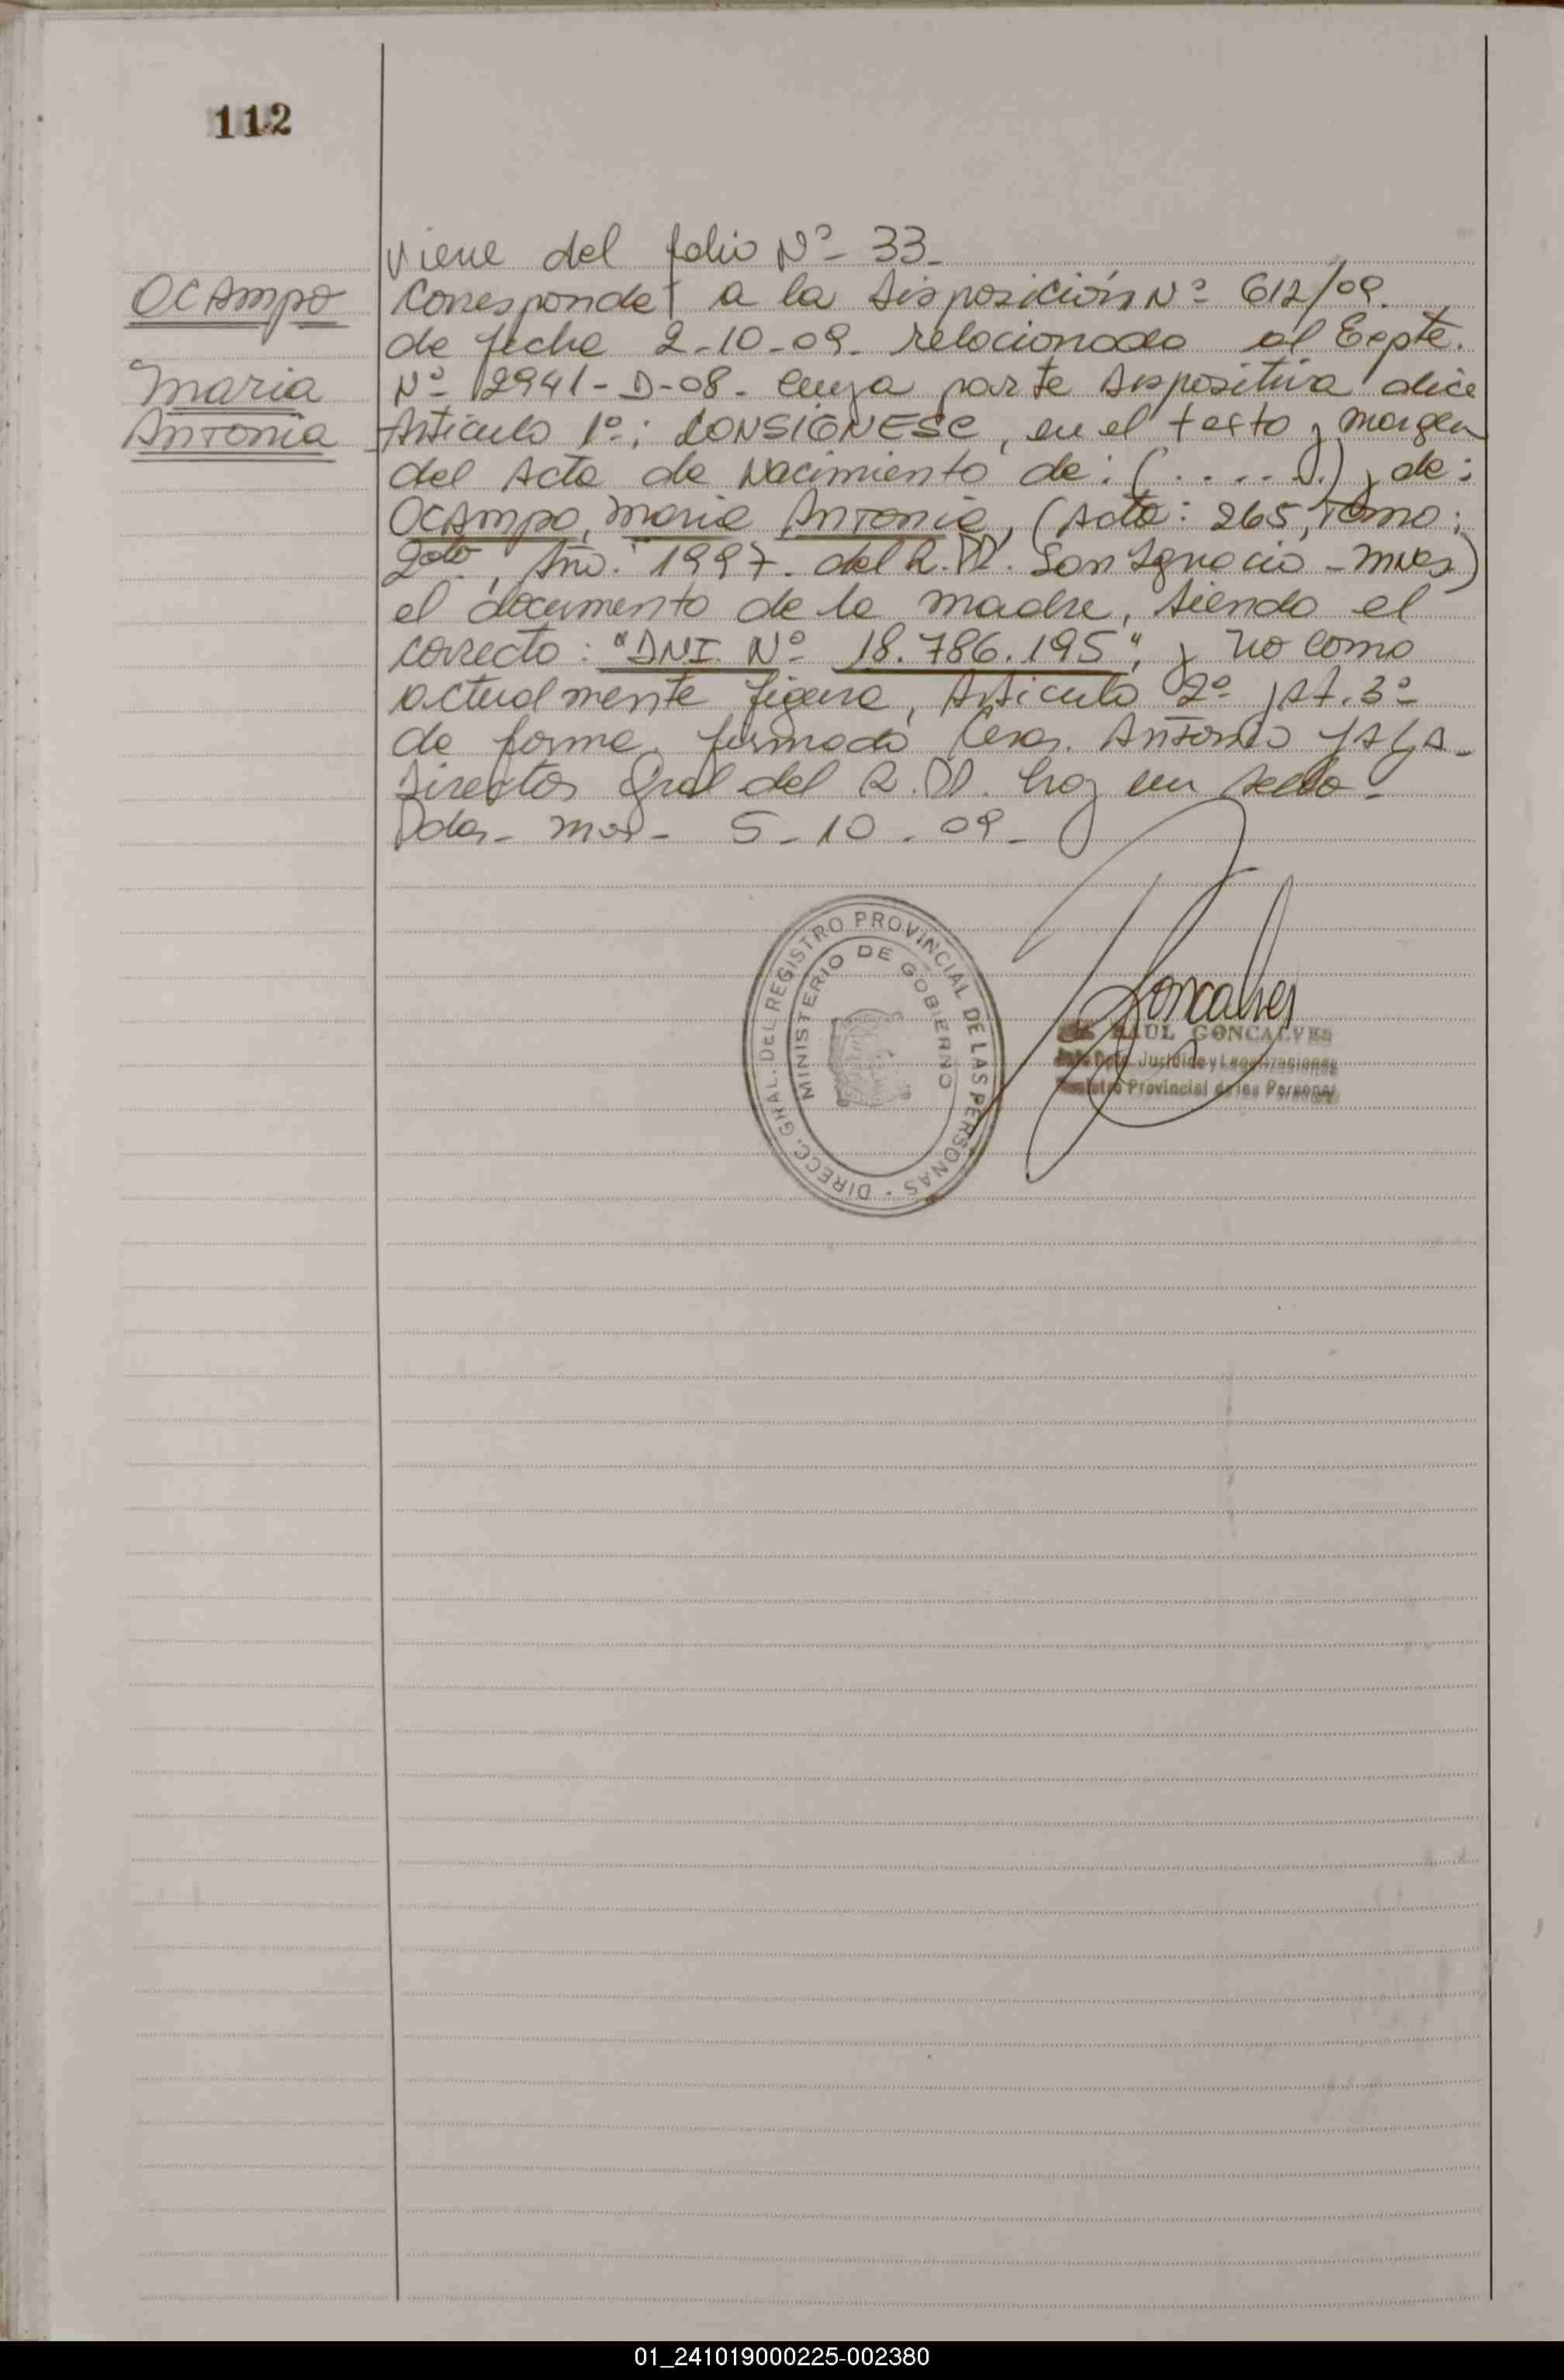 112
Ocampo
Maria
Antonia
Viene del folio Nº 33-
Corresponde a la Disposición Nº 612/09.
de fecha 2-10-09. relacionado al Expte.
Nº 2941-D-08- cuya parte dispositiva dice
Artículo 1º: CONSIGNESE, en el texto y margen
del Acta de Nacimiento de: (.....) y de:
Ocampo, Maria Antonia, (Acta: 265, Tomo:
2do, Año: 1997. del R.PP. San Ignacio - Mnes)
el documento de la madre, siendo el
correcto: "DNI Nº 18.786.195", y no como
actualmente figura, Artículo 2º, Art. 3º
de forma, firmado Antonio
Director Gral del R.PP. hay un sello-
Pdas- Mns- 5-10-09-
DIRECC. GRAL. DEL REGISTRO PROVINCIAL DE LAS PERSONAS -
MINISTERIO DE GOBIERNO
Goncalves
RAUL GONCALVES
Jurídica y Legalizaciones
Provincial de las Personas
01_241019000225-002380